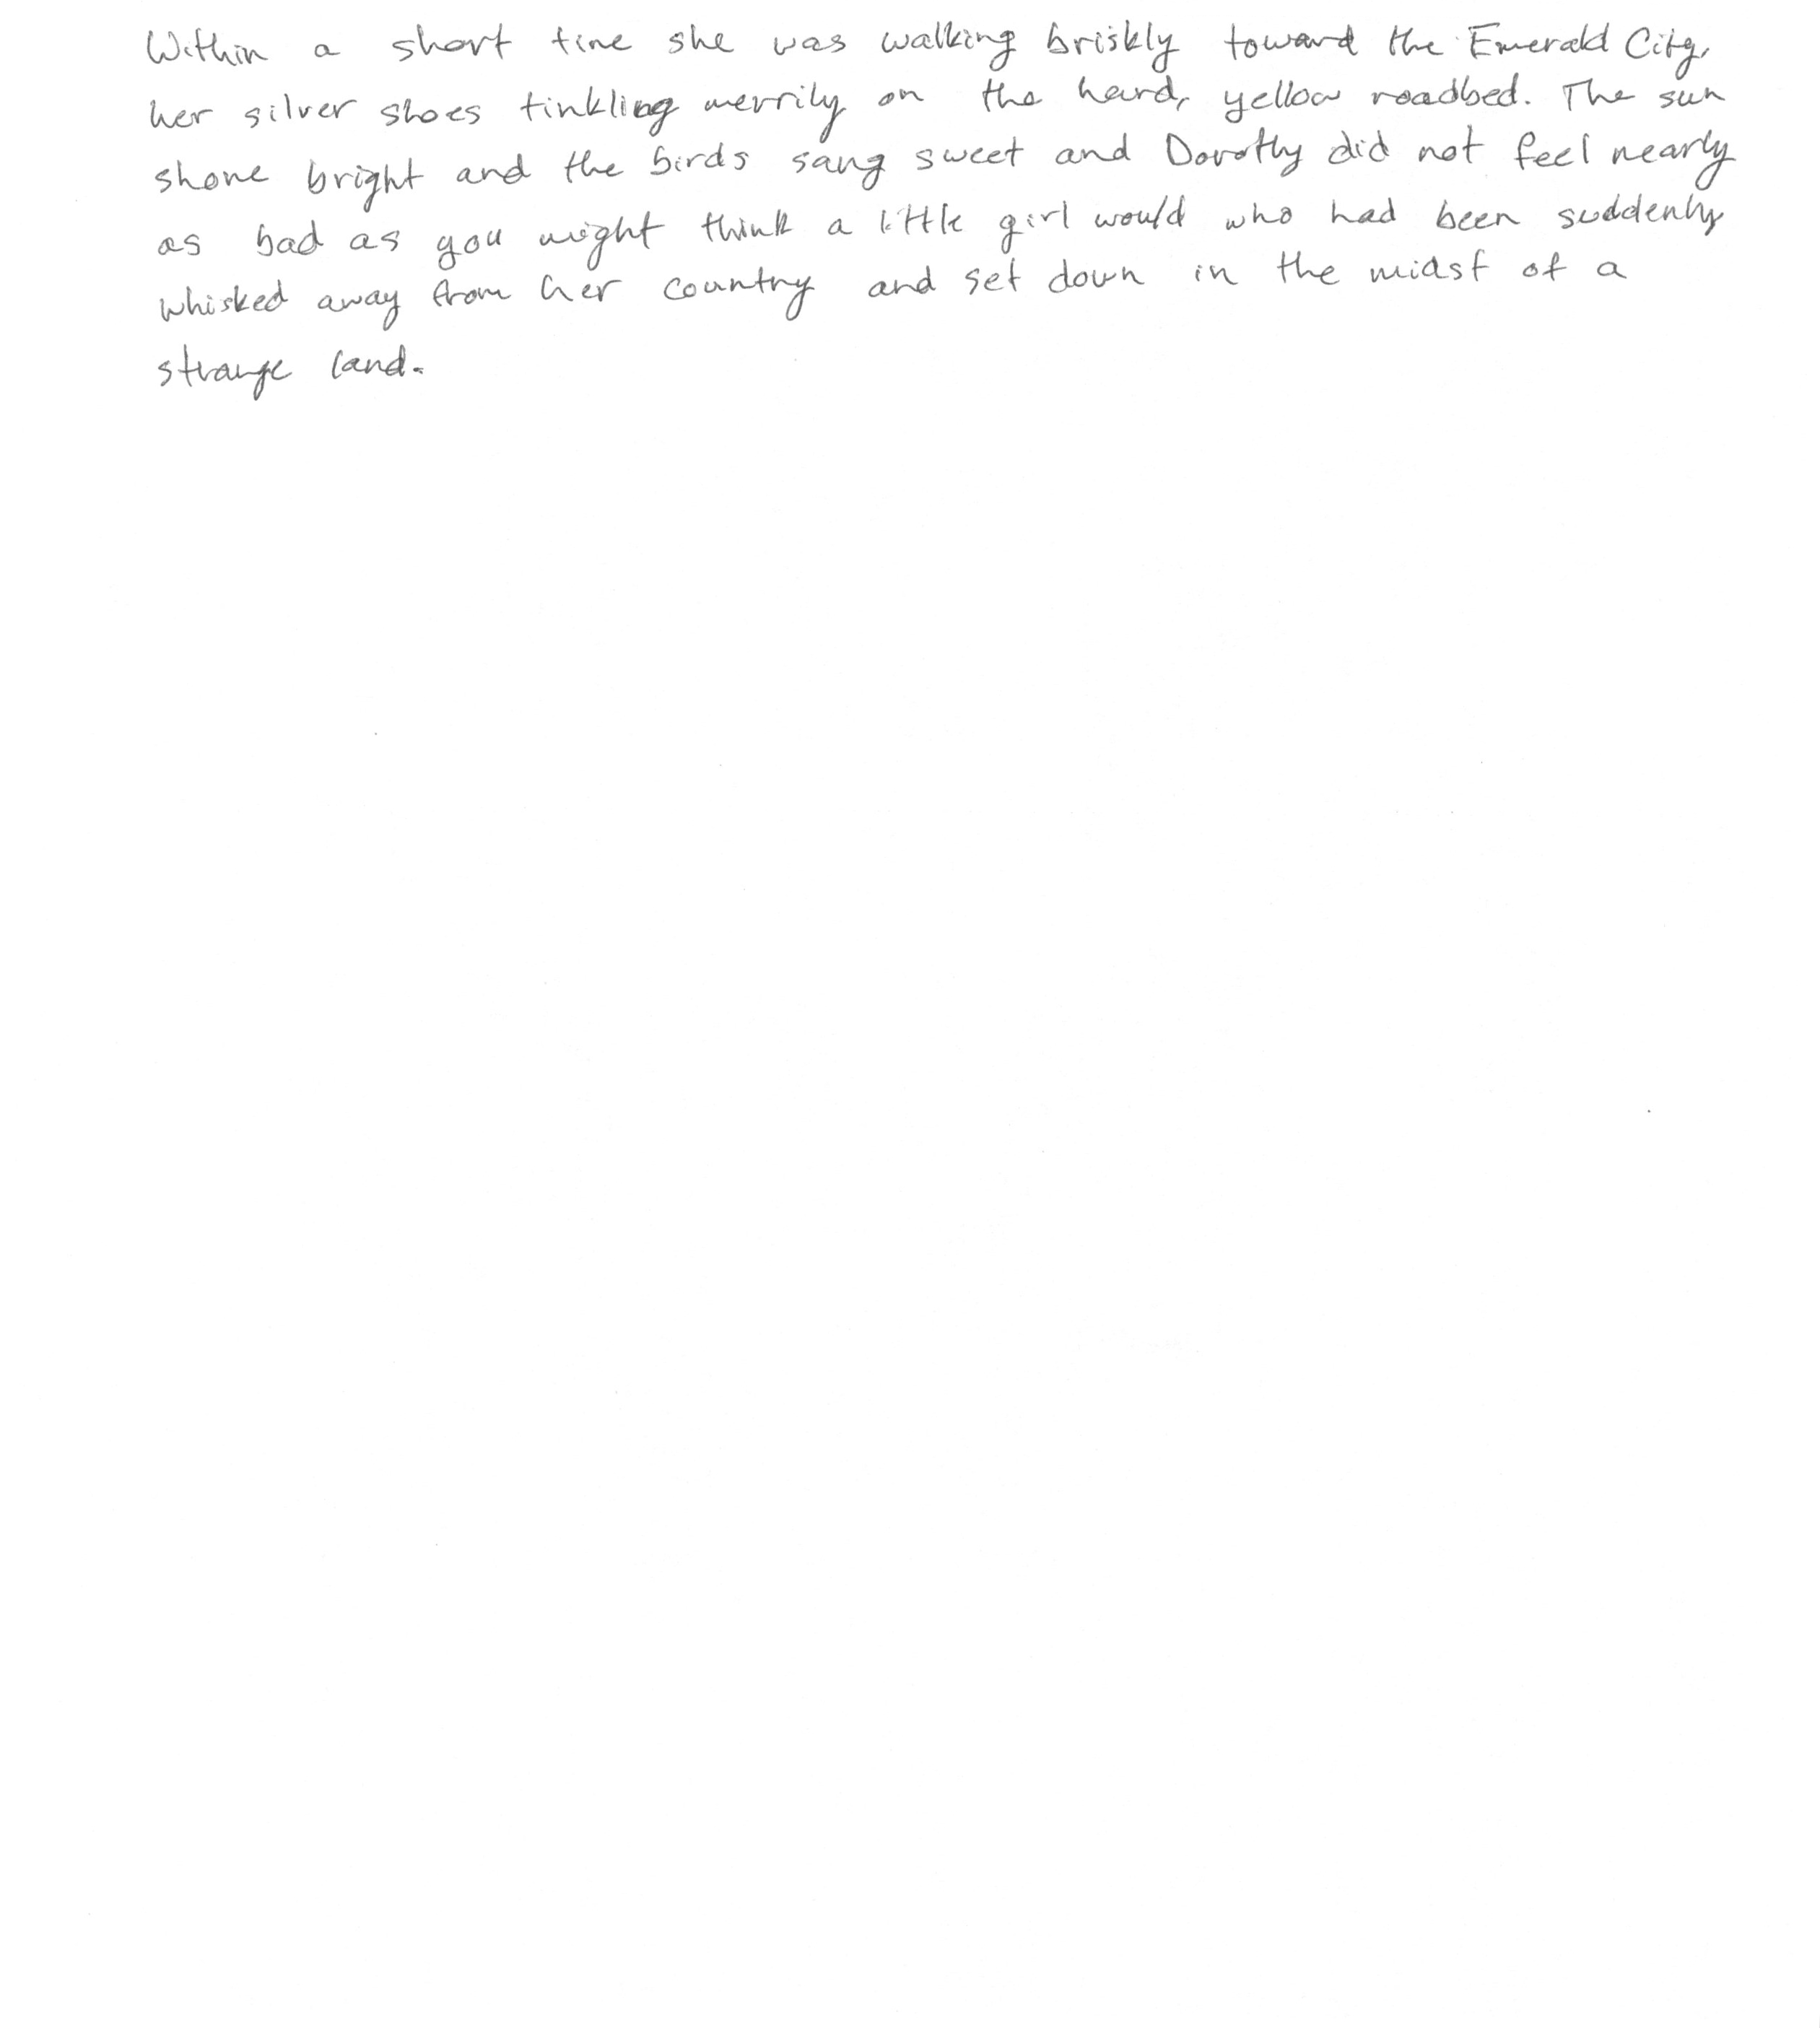 Within a short time she was walking briskly toward the Emerald City,
her silver shoes tinkling merrily on the hard, yellow roadbed. The sun
shone bright and the birds sang sweet and Dorothy did not feel nearly
as bad as you might think a little girl would who had been suddenly
whisked away from her country and set down in the midst of a
strange land.